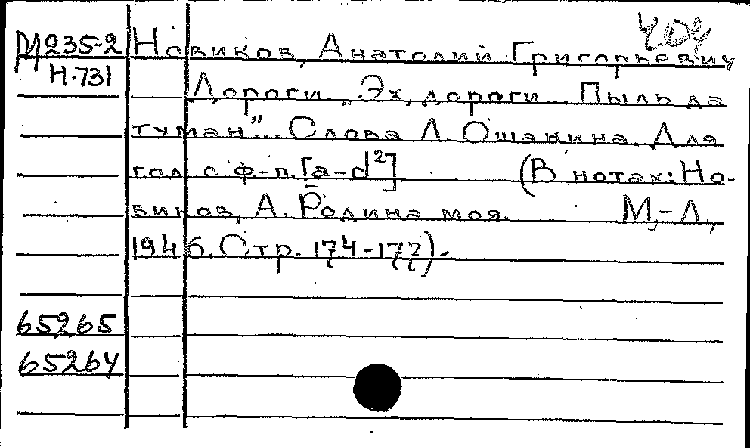 404
М235-2 Новиков, Анатолий Григорьевич
Н.731
Дороги „Эх, дороги... Пыль да
туман"... Слова Л. Ошанина. Для
гол. с ф-п. [a-d²] (В нотах: Но-
виков, А. Родина моя. М,-Л,
1946. Стр. 174-177).
65265
65264